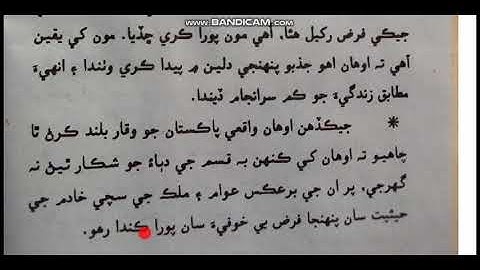 www.BANDICAM.com
جيڪي فرض رکيل هئا، اهي مون پورا ڪري ڇڏيا. مون کي يقين
آهي ته اوهان اهو جذبو پنهنجي دلين ۾ پيدا ڪري وٺندا ۽ انهيءَ
مطابق زندگيءَ جو ڪم سرانجام ڏيندا.
* جيڪڏهن اوهان واقعي پاڪستان جو وقار بلند ڪرڻ ٿا
چاهيو ته اوهان کي ڪنهن به قسم جي دٻاءُ جو شڪار ٿيڻ نه
گهرجي، پر ان جي برعڪس عوام ۽ ملڪ جي سچي خادم جي
حيثيت سان پنهنجا فرض بي خوفيءَ سان پورا ڪندا رهو.